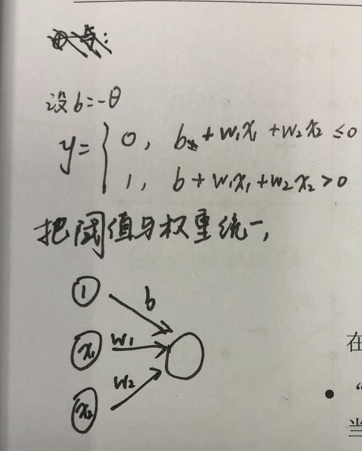 设b=-θ
y={ 0, b+w₁x₁+w₂x₂≤0
1, b+w₁x₁+w₂x₂>0
把阈值与权重统一,
1 b
x₁ w₁
x₂ w₂
在
• “
当